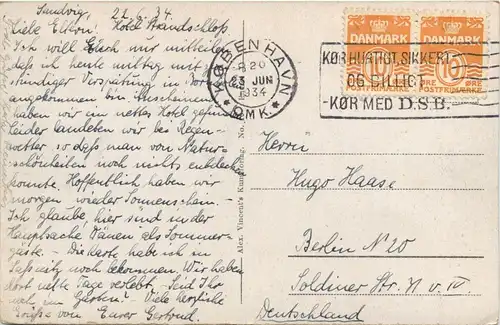 Sandvig, 21.6.34.
Hotel Strandschloß
Liebe Eltern!
Ich will Euch nur mitteilen
daß ich heute mittag mit
stündiger Verspätung in
angekommen bin. Anscheinend
haben wir ein nettes Hotel
Leider landeten wir bei Regen-
wetter so daß man von Natur-
schönheiten noch nichts entdecken
konnte. Hoffentlich haben wir
morgen wieder Sonnenschein.-
Ich glaube, hier sind in der
Hauptsache Dänen als Sommer-
gäste. - Die Karte habe ich in
Saßnitz noch bekommen. Wir haben
dort nette Tage verlebt. Seid Ihr
noch im Garten? Viele herzliche
Grüße von Eurer Gertrud.
Alex. Vincent's Kunstforlag. No.
KØBENHAVN
8.20
23 JUN
1934
OMK.
DANMARK
DANMARK
10
10
ØRE
POSTFRIMÆRKE
ØRE
POSTFRIMÆRKE
KØR HURTIGT, SIKKERT
OG BILLIGT
-KØR MED D.S.B.-
Herrn
Hugo Haase
Berlin N 20
Soldiner Str.
Deutschland